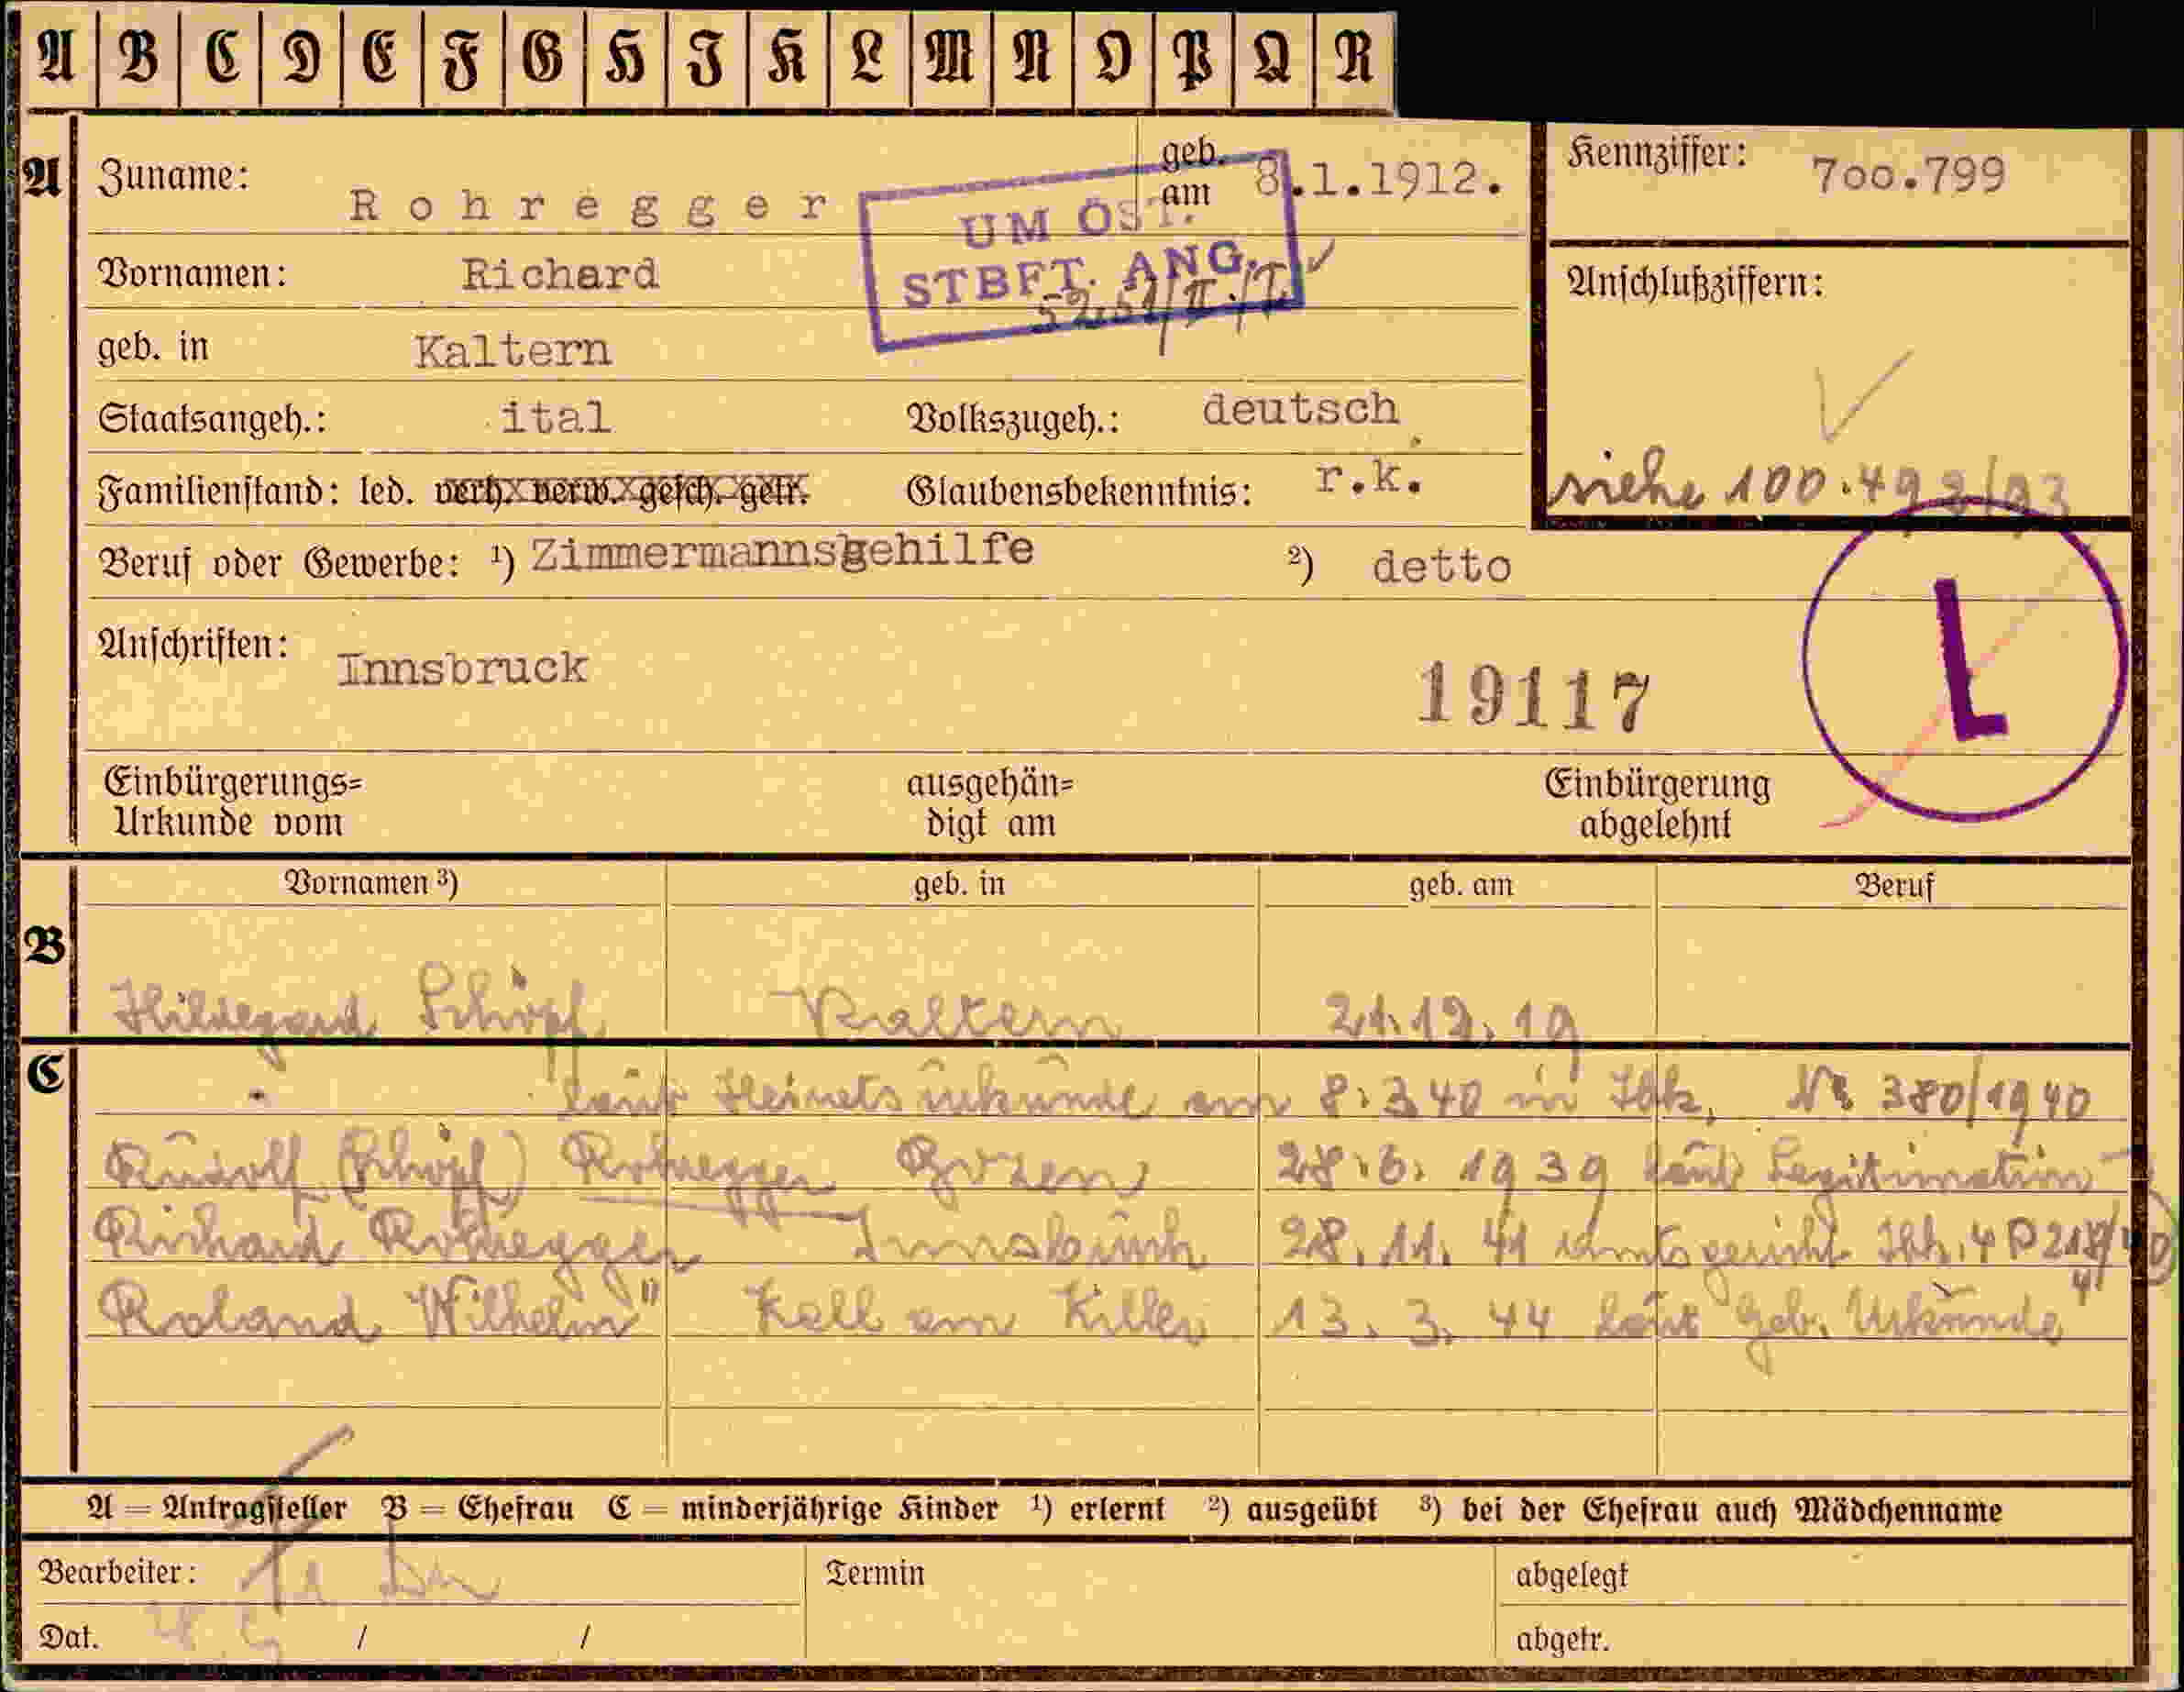 A B C D E F G H I K L M N O P Q R
A
Zuname: Rohregger
geb. am 8.1.1912.
Kennziffer: 7oo.799
UM ÖST.
STBFT. ANG.
Vornamen: Richard
Anschlußziffern:
geb. in Kaltern
Staatsangeh.: ital Volkszugeh.: deutsch
Familienstand: led. verh. verw. gesch. getr. Glaubensbekenntnis: r.k.
siehe 100.493/93
Beruf oder Gewerbe: ¹) Zimmermannsgehilfe ²) detto
L
Anschriften: Innsbruck
19117
Einbürgerungs=
Urkunde vom
ausgehän=
digt am
Einbürgerung
abgelehnt
Vornamen ³) geb. in geb. am Beruf
B
Hildegard Schöpf Kaltern 21.12.19
C
laut Heiratsurkunde am 8.3.40 in Ibk, Nr. 380/1940
Rudolf (Schöpf) Rohregger Bozen 28.6.1939 laut Legitimation
Richard Rohregger Innsbruck 28.11.41 Amtsgericht Ibk. 4 P
Roland Wilhelm " 13.3.44 laut Geb. Urkunde
A = Antragsteller B = Ehefrau C = minderjährige Kinder ¹) erlernt ²) ausgeübt ³) bei der Ehefrau auch Mädchenname
Bearbeiter:
Termin
abgelegt
Dat. / /
abgetr.